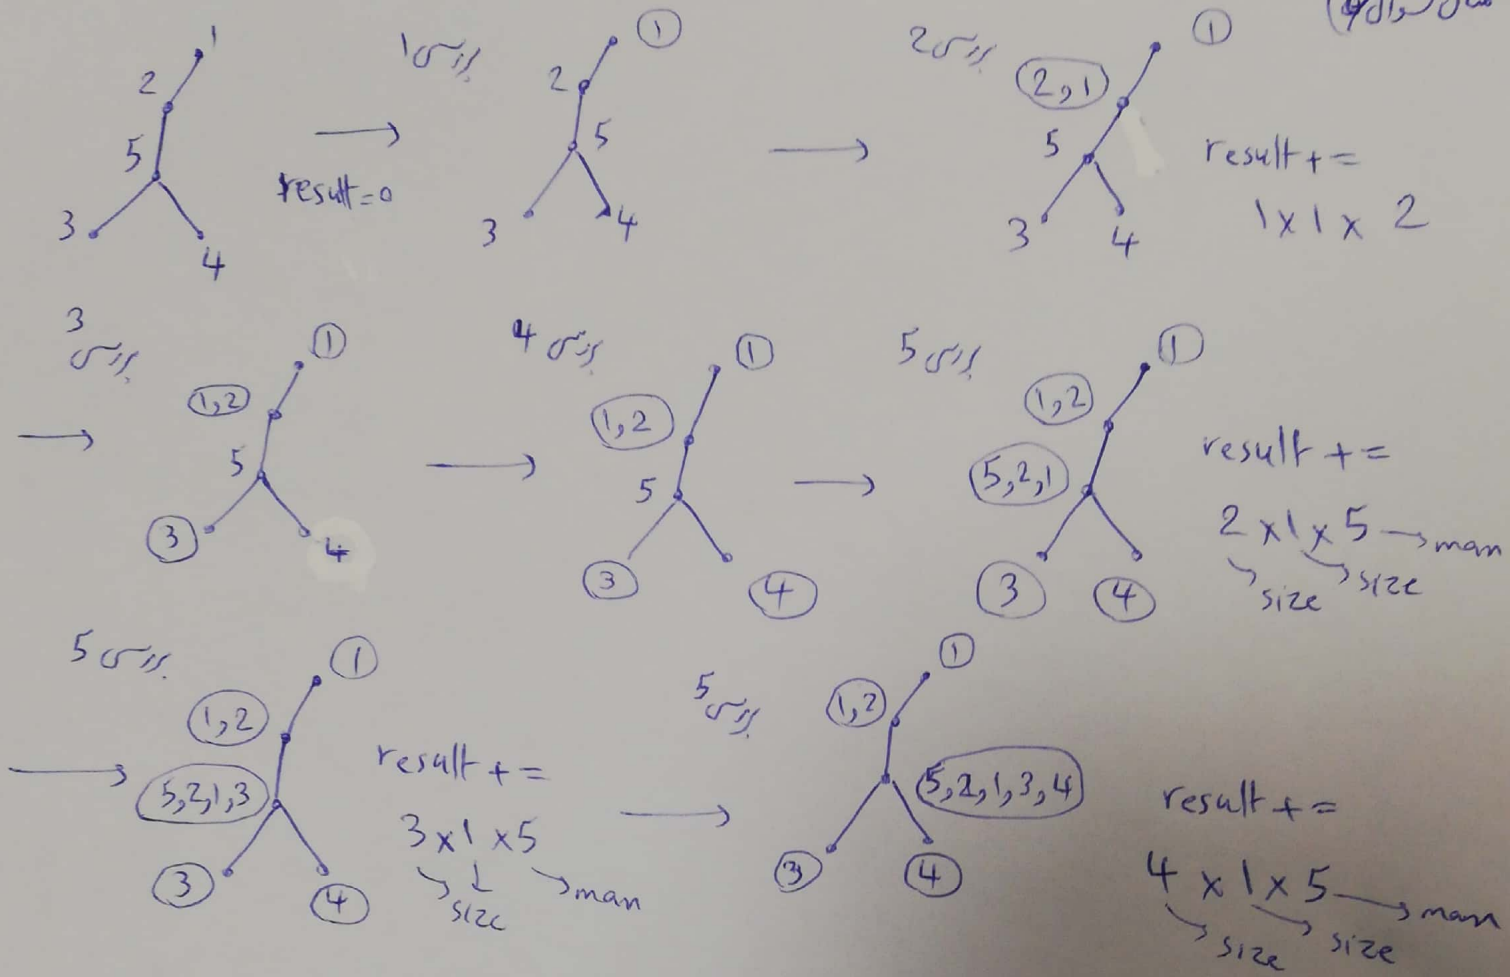 مثال سوال 4)
1
2
5
3
4
result=0
بررسی 1
1
2
5
3
4
بررسی 2
1
2,1
5
3
4
result +=
1 x 1 x 2
بررسی 3
1
1,2
5
3
4
بررسی 4
1
1,2
5
3
4
بررسی 5
1
1,2
5,2,1
3
4
result +=
2 x 1 x 5 → max
size size
بررسی 5
1
1,2
5,2,1,3
3
4
result +=
3 x 1 x 5
size max
بررسی 5
1
1,2
5,2,1,3,4
3
4
result +=
4 x 1 x 5 → max
size size